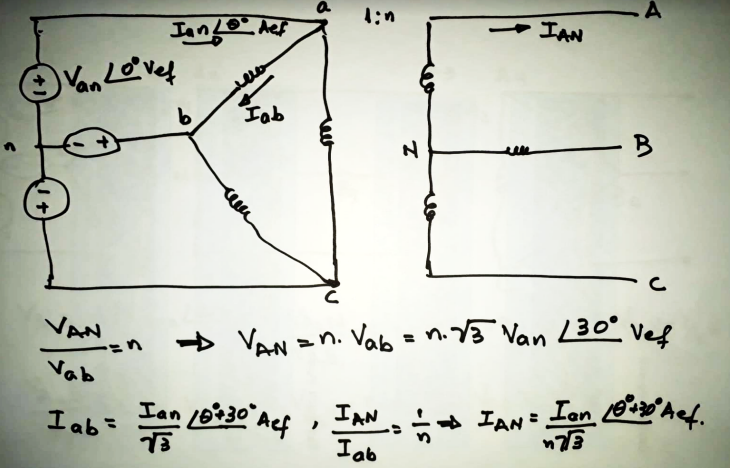 a
I_an ∠θ° Aef
1:n
A
I_AN
V_an ∠0° Vef
- +
I_ab
b
n
- +
N
B
- +
C
C
V_AN / V_ab = n ⇒ V_AN = n · V_ab = n · √3 V_an ∠30° Vef
I_ab = I_an / √3 ∠θ°+30° Aef , I_AN / I_ab = 1/n ⇒ I_AN = I_an / n√3 ∠θ°+30° Aef.